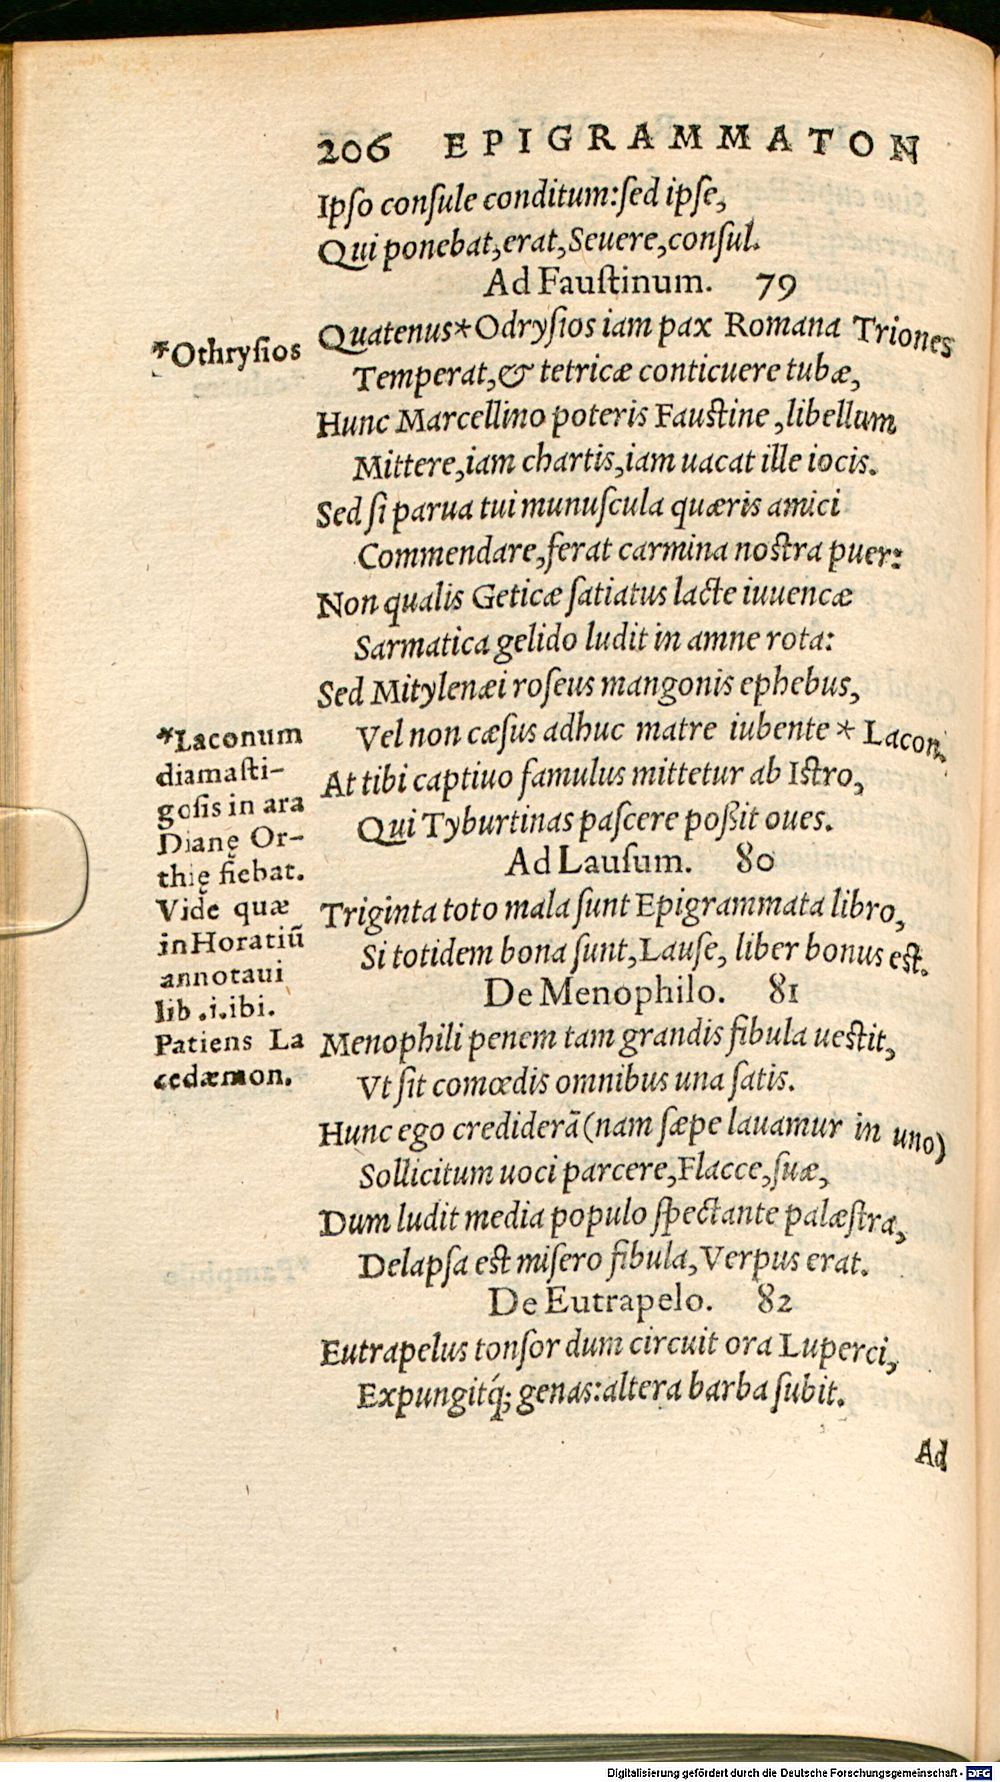 206 EPIGRAMMATON
Ipſo conſule conditum:ſed ipſe,
Qui ponebat,erat,Seuere,conſul.
Ad Fauſtinum. 79
Quatenus*Odryſios iam pax Romana Triones
Temperat,& tetricæ conticuere tubæ,
Hunc Marcellino poteris Fauſtine,libellum
Mittere,iam chartis,iam uacat ille iocis.
Sed ſi parua tui munuſcula quæris amici
Commendare,ferat carmina noſtra puer:
Non qualis Geticæ ſatiatus lacte iuuencæ
Sarmatica gelido ludit in amne rota:
Sed Mitylenæi roſeus mangonis ephebus,
Vel non cæſus adhuc matre iubente * Lacon.
At tibi captiuo famulus mittetur ab Iſtro,
Qui Tyburtinas paſcere poßit oues.
Ad Lauſum. 80
Triginta toto mala ſunt Epigrammata libro,
Si totidem bona ſunt,Lauſe, liber bonus eſt.
De Menophilo. 81
Menophili penem tam grandis fibula ueſtit,
Vt ſit comœdis omnibus una ſatis.
Hunc ego crediderã(nam ſæpe lauamur in uno)
Sollicitum uoci parcere,Flacce,ſuæ,
Dum ludit media populo ſpectante palæſtra,
Delapſa eſt miſero fibula,Verpus erat.
De Eutrapelo. 82
Eutrapelus tonſor dum circuit ora Luperci,
Expungitq́; genas:altera barba ſubit.
Ad
*Othryſios
*Laconum
diamaſti-
goſis in ara
Dianę Or-
thię fiebat.
Vide quæ
in Horatiũ
annotaui
lib.i.ibi.
Patiens La
cedæmon.
Digitalisierung gefördert durch die Deutsche Forschungsgemeinschaft - DFG